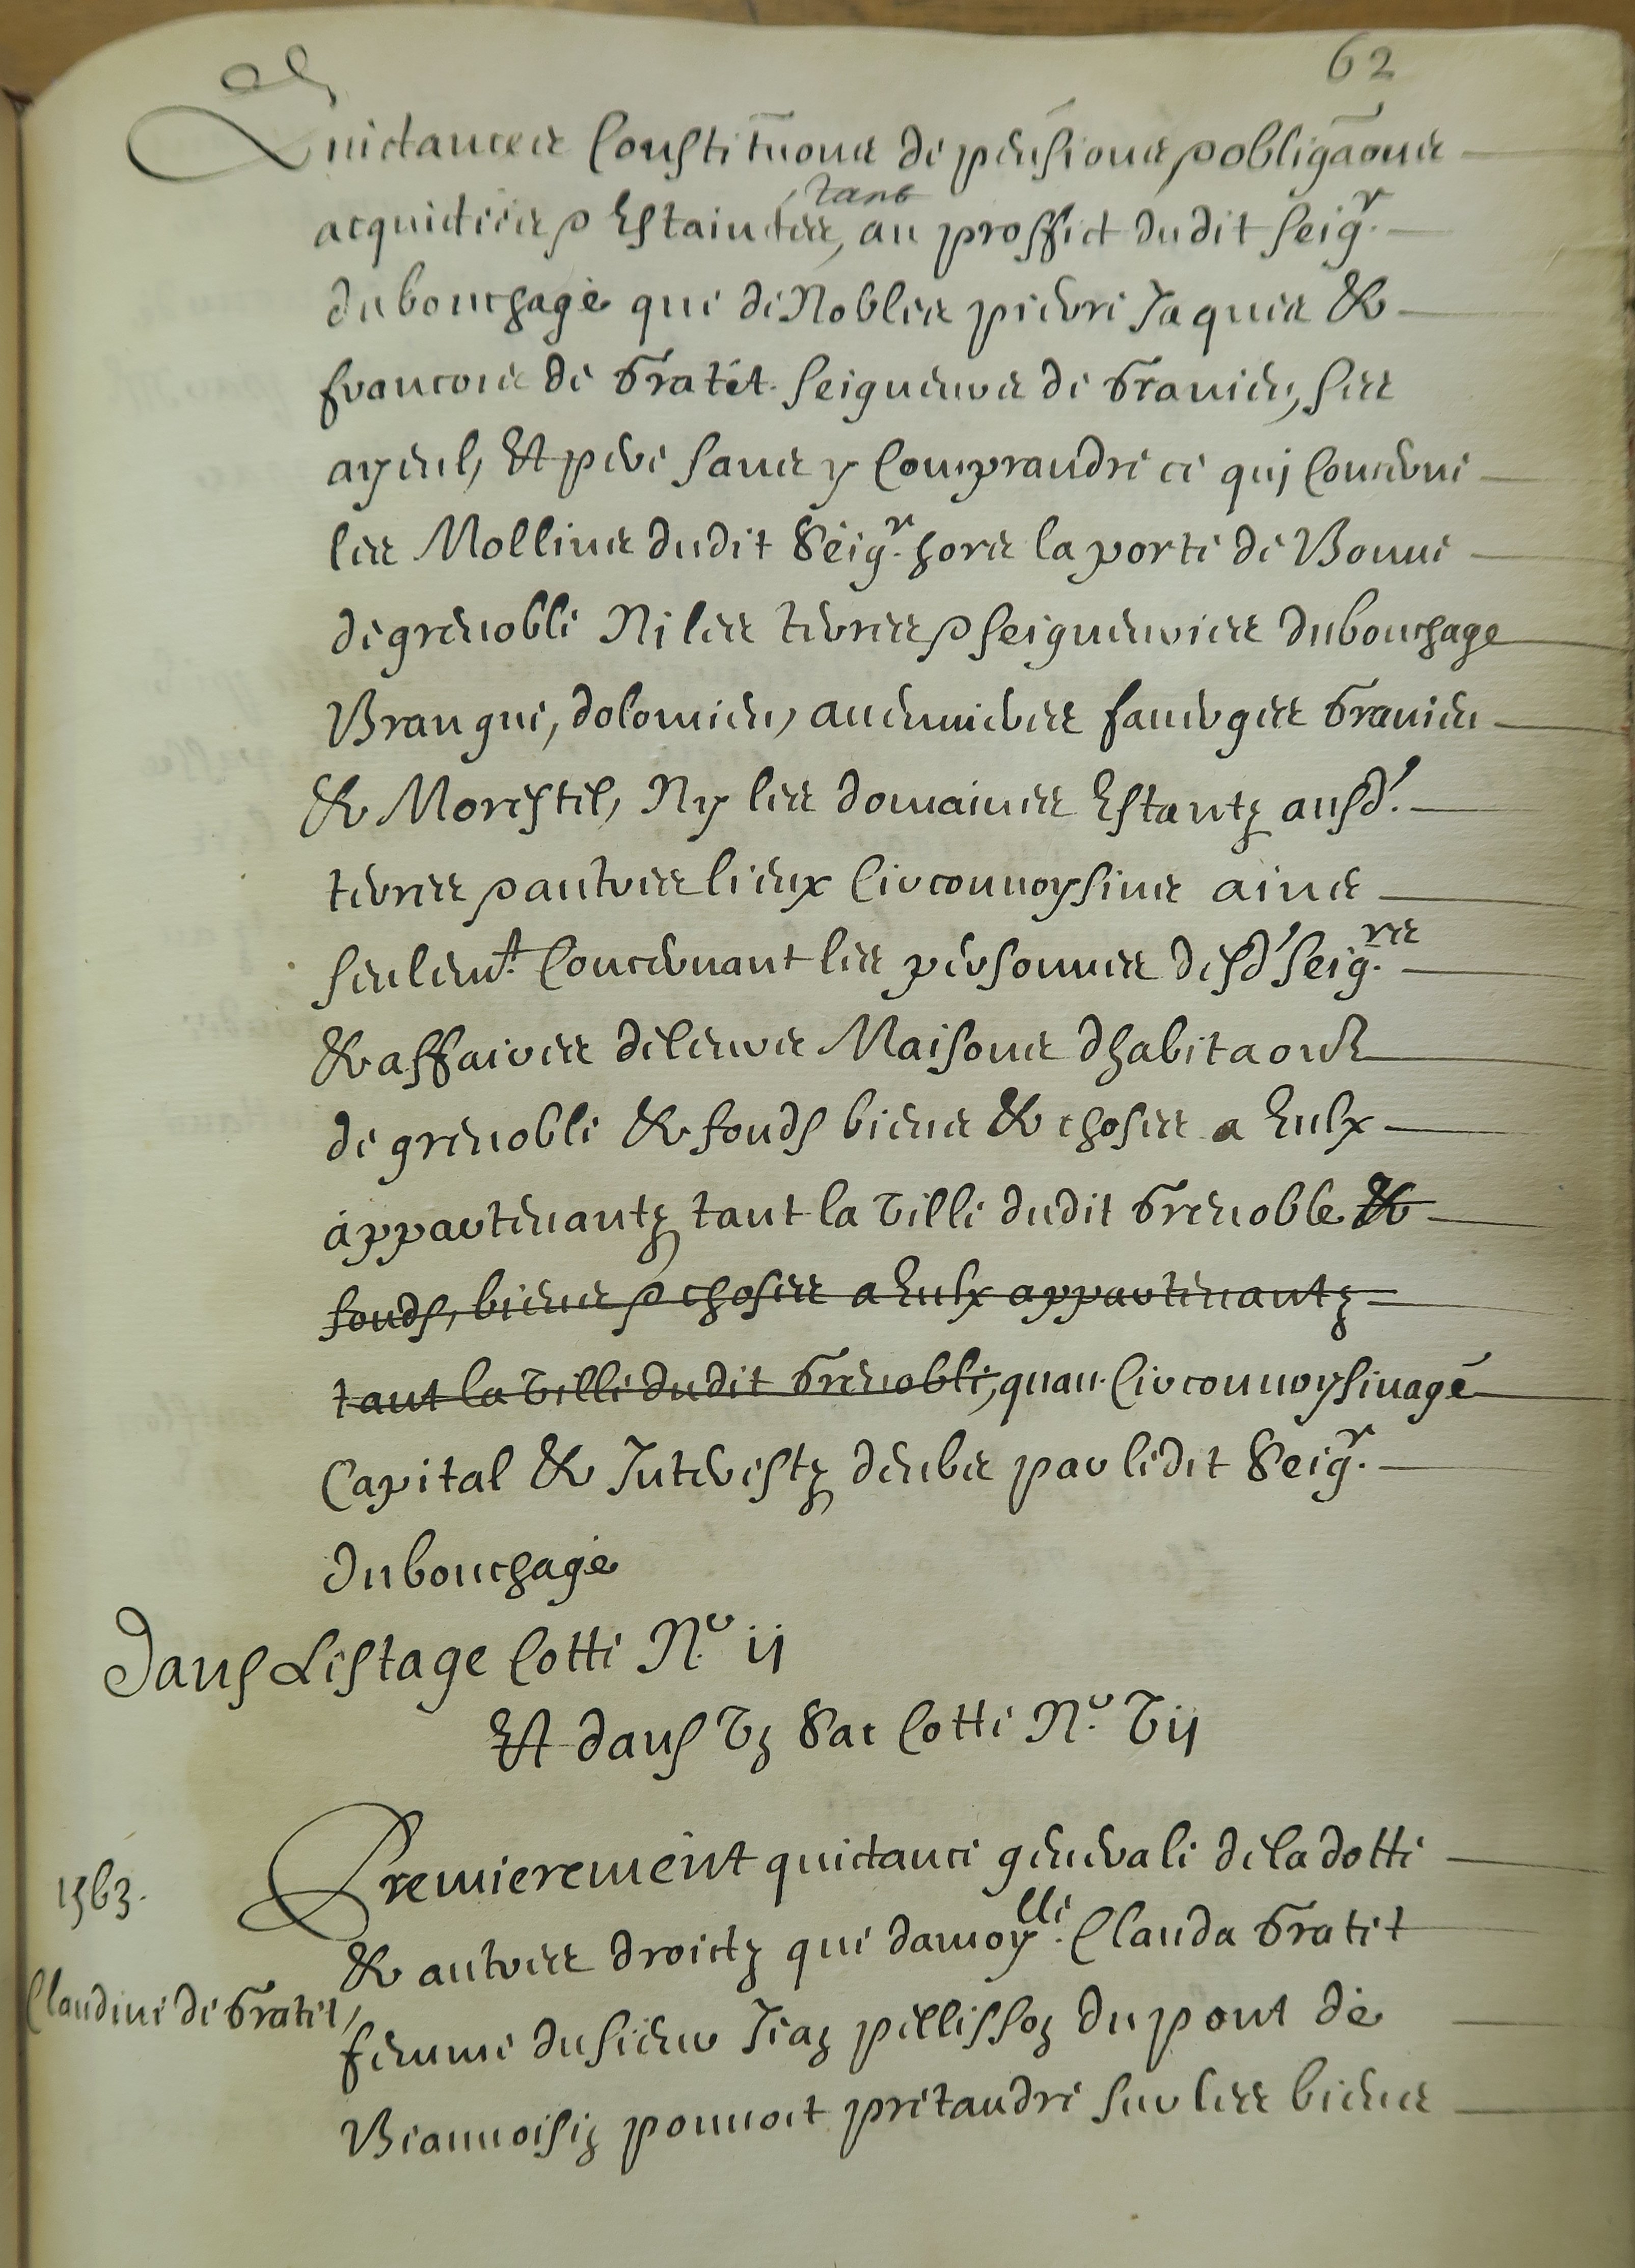 62
Quictances Constituōns de pensions & obligāons
acquictées & Estainctes, tant au proffict dudit seigr.
dubouchage que de Nobles pierre Jaques &
francois de Gratet seigneurs de Granieu, ses
ayeul, Et pere sans y Comprandre ce quj Concerne
les Mollins dudit Seigr. hors la porte de Bonne
de grenoble Ni les terres & seigneuries dubouchage
Brangue, dolomieu, auennieres fauerges Granieu
& Morestel, Ny les domaines Estantz ausd.
terres & autres lieux Circonuoysins ains
seulemt. Concernant les personnes desd seigrs.
& affaires de leurs Maisons dhabitaons
de grenoble & fonds biens & choses a Eulx
appartenantz tant la Ville dudit Grenoble &
fonds, biens & choses a Eulx appartenantz
tant la Ville dudit Grenoble, quau Circonuoysinage
Capital & Interestz deubs par ledit Seigr.
dubouchage
Dans Lestage Cotté No. ij
Et dans Vz Sac Cotté No. Vij
1563.
Premierement quictance generale de la dotte
& autres droictz que damoylle. Clauda Gratet
Claudine de Gratet,
femme du sieur Jeaz pellissoz du pont de
Beauuoisiz pouuoit pretandre sur les biens